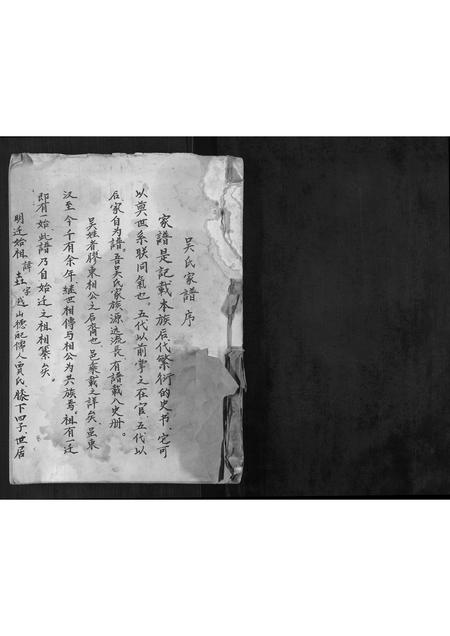 吴氏家譜序
家譜是記載本族后代繁衍的史书,它可
以奠世系联同氣也。五代以前掌之在官,五代以
后家自为譜。吾吴氏家族源远流長有譜載入史册。
吴姓者膠東相公之后裔也,邑乘載之詳矣,显東
汉至今千有余年,継世相傳与相公为共族焉,祖有一迁
即有一始,此譜乃自始迁之祖相纂矣。
明迁始祖諱 字越山德配儒人賈氏膝下四子世居